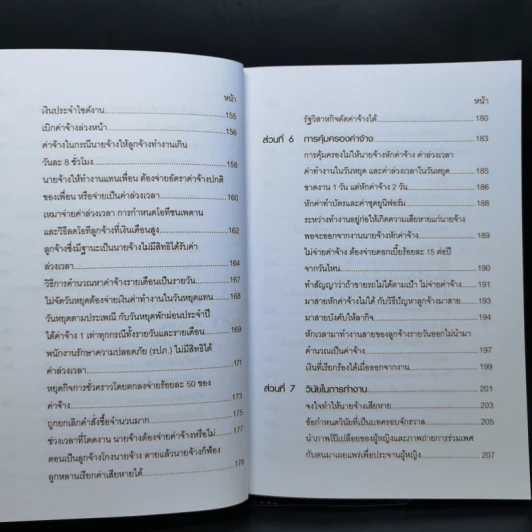 หน้า
เงินประจำไซด์งาน 155
เบิกค่าจ้างล่วงหน้า 156
ค่าจ้างในกรณีนายจ้างให้ลูกจ้างทำงานเกิน
วันละ 8 ชั่วโมง 158
นายจ้างให้ทำงานแทนเพื่อน ต้องจ่ายอัตราค่าจ้างปกติ
ของเพื่อน หรือจ่ายเป็นค่าล่วงเวลา 160
เหมาจ่ายค่าล่วงเวลา การกำหนดโอทีซนเพดาน
และวิธีลดโอทีลูกจ้างที่เงินเดือนสูง 162
ลูกจ้างซึ่งมีฐานะเป็นนายจ้างไม่มีสิทธิได้รับค่า
ล่วงเวลา 164
วิธีการคำนวณหาค่าจ้างรายเดือนเป็นรายวัน 167
ไม่จัดวันหยุดต้องจ่ายเงินค่าทำงานในวันหยุดแทน 168
วันหยุดตามประเพณี กับวันหยุดพักผ่อนประจำปี
ได้ค่าจ้าง 1 เท่าทุกกรณีทั้งรายวันและรายเดือน 169
พนักงานรักษาความปลอดภัย (รปภ.) ไม่มีสิทธิได้
ค่าล่วงเวลา 171
หยุดกิจการชั่วคราวโดยตกลงจ่ายร้อยละ 50 ของ
ค่าจ้าง 173
ถูกยกเลิกคำสั่งซื้อจำนวนมาก 175
ช่วงเวลาที่โดดงาน นายจ้างต้องจ่ายค่าจ้างหรือไม่ 177
ตอนเป็นลูกจ้างโกงนายจ้าง ตายแล้วนายจ้างก็ฟ้อง
ลูกหลานเรียกค่าเสียหายได้ 179
หน้า
รัฐวิสาหกิจตัดค่าจ้างได้ 180
ส่วนที่ 6 การคุ้มครองค่าจ้าง 183
การคุ้มครองไม่ให้นายจ้างหักค่าจ้าง ค่าล่วงเวลา
ค่าทำงานในวันหยุด และค่าล่วงเวลาในวันหยุด 185
ขาดงาน 1 วัน แต่หักค่าจ้าง 2 วัน 186
หักค่าทำบัตรและค่าชุดยูนิฟอร์ม 188
ระหว่างทำงานอยู่ก่อให้เกิดความเสียหายแก่นายจ้าง
พอจะออกจากงานนายจ้างหักค่าจ้าง 189
ไม่จ่ายค่าจ้าง ต้องจ่ายดอกเบี้ยร้อยละ 15 ต่อปี
จากวันไหน 190
ทำสัญญาว่าถ้าขายรถไม่ได้ตามเป้า ไม่จ่ายค่าจ้าง 191
มาสายหักค่าจ้างไม่ได้ กับวิธีปัญหาลูกจ้างมาสาย 193
มาสายบังคับให้ลากิจ 194
หักเวลามาทำงานสายของลูกจ้างรายวันออกไม่นำมา
คำนวณเป็นค่าจ้าง 197
เงินที่เรียกร้องได้เมื่อออกจากงาน 199
ส่วนที่ 7 วินัยในการทำงาน 201
จงใจทำให้นายจ้างเสียหาย 203
ข้อกำหนดวินัยที่เป็นบทครอบจักรวาล 205
นำภาพโป๊เปลือยของผู้หญิงและภาพถ่ายการร่วมเพศ
กับตนมาเผยแพร่เพื่อประจานผู้หญิง 207